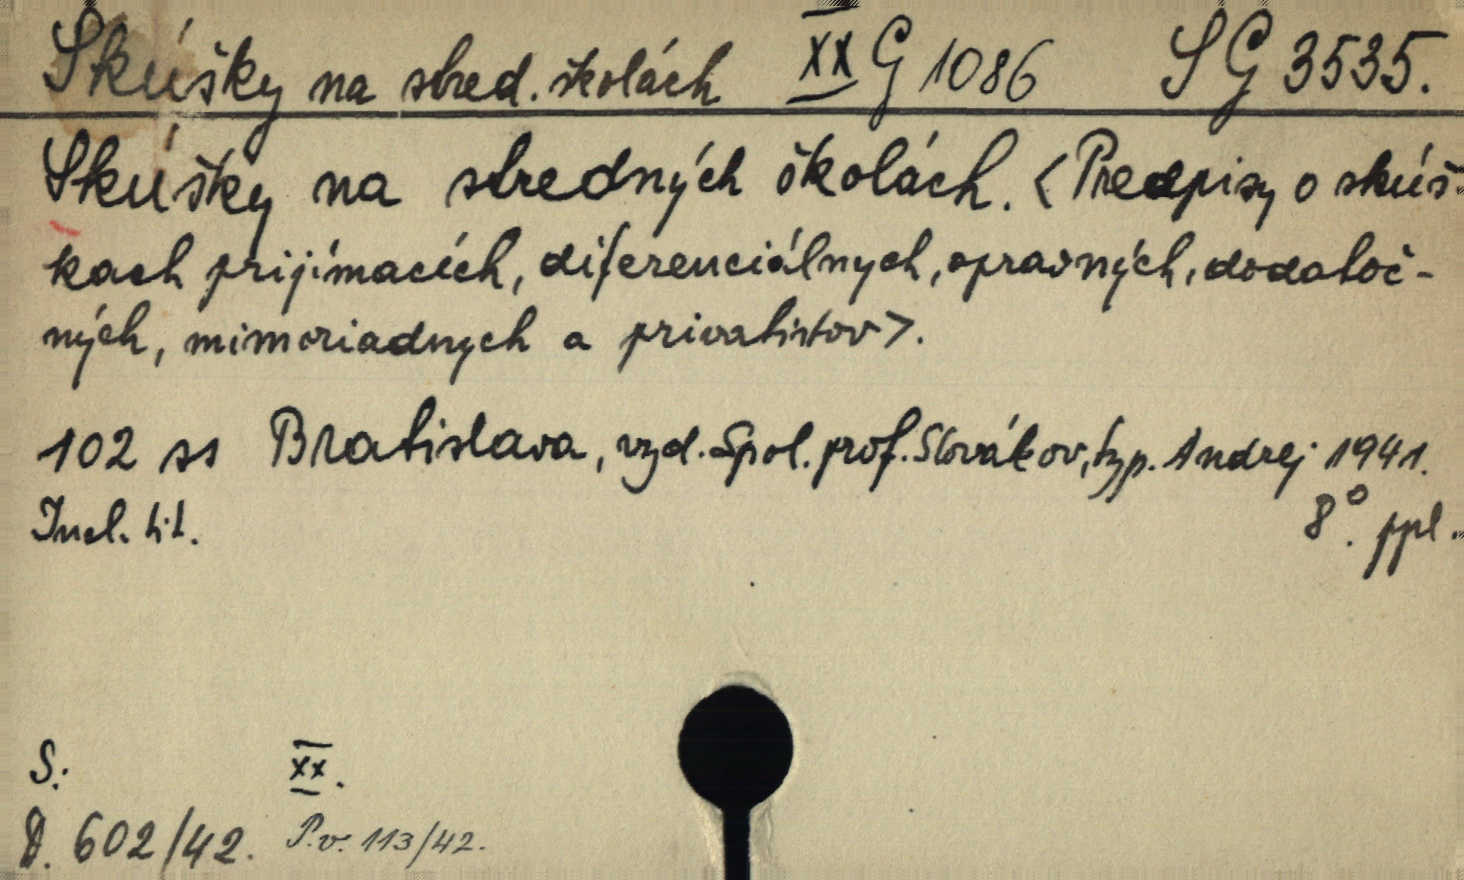 Skúšky na stred. školách XX G 1086 SG 3535.
Skúšky na stredných školách. <Predpisy o skúš-
kach prijímacích, diferenciálnych, opravných, dodatoč-
ných, mimoriadnych a privatistov>.
102 ss Bratislava, vyd. Spol. prof. Slovákov, typ. Andrej 1941.
Incl. tit. 8°. ppl.
S: XX.
D. 602/42. P.v. 113/42.